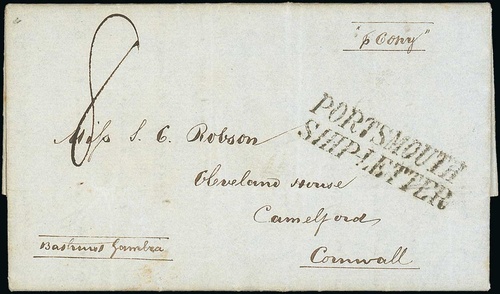 "p Cosry"
8
PORTSMOUTH
SHIP-LETTER
Miss S. C. Robson
Cleveland House
Camelford
Cornwall
Bathurst Gambia